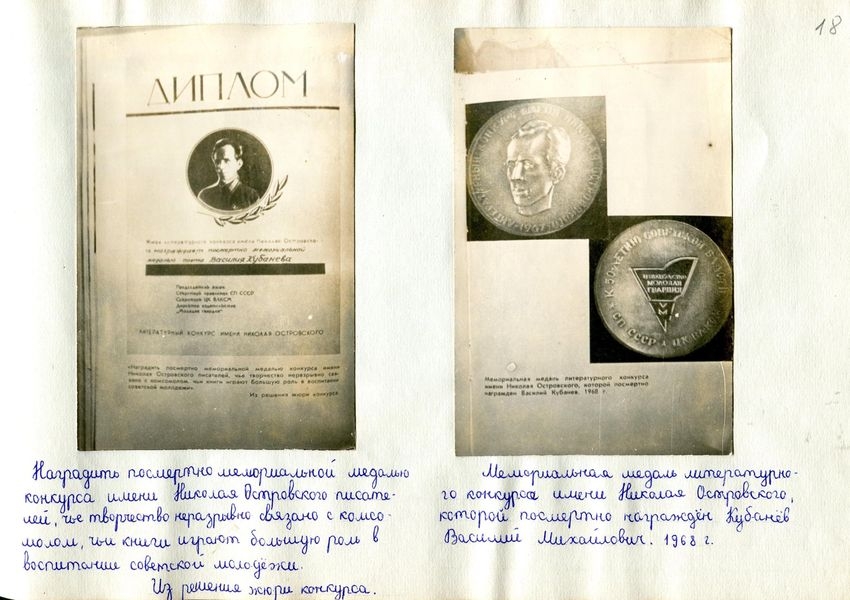 18
ДИПЛОМ
Жюри литературного конкурса имени Николая Островского
награждает посмертно мемориальной
медалью поэта Василия Кубанева
Председатель жюри
Секретарь правления СП СССР
Секретарь ЦК ВЛКСМ
Директор издательства
"Молодая гвардия"
ЛИТЕРАТУРНЫЙ КОНКУРС ИМЕНИ НИКОЛАЯ ОСТРОВСКОГО
«Наградить посмертно мемориальной медалью конкурса имени
Николая Островского писателей, чье творчество неразрывно свя-
зано с комсомолом, чьи книги играют большую роль в воспитании
советской молодежи».
Из решения жюри конкурса.
Наградить посмертно мемориальной медалью
конкурса имени Николая Островского писате-
лей, чьё творчество неразрывно связано с комсо-
молом, чьи книги играют большую роль в
воспитании советской молодёжи.
Из решения жюри конкурса.
1967
К 50-ЛЕТИЮ СОВЕТСКОЙ ВЛАСТИ
ИЗДАТЕЛЬСТВО
МОЛОДАЯ
ГВАРДИЯ
СП СССР ЦК ВЛКСМ
Мемориальная медаль литературного конкурса
имени Николая Островского, которой посмертно
награжден Василий Кубанев. 1968 г.
Мемориальная медаль литературно-
го конкурса имени Николая Островского,
которой посмертно награждён Кубанёв
Василий Михайлович. 1968 г.